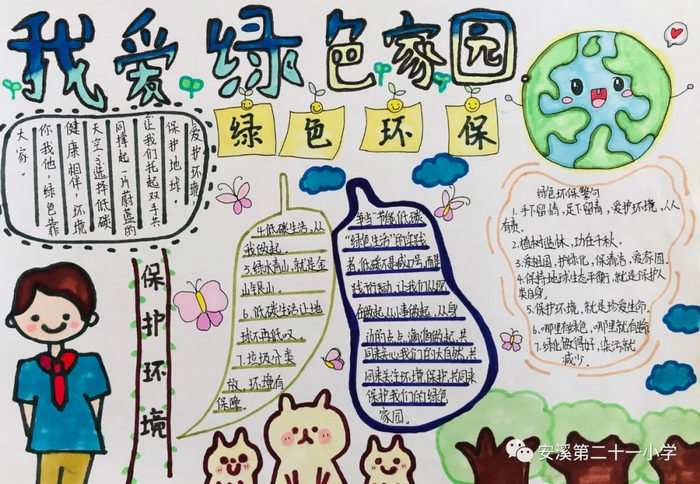 我爱绿色家园
绿色环保
爱护环境
保护地球,
让我们托起双手共
同撑起一片蔚蓝的
天空;选择低碳
健康相伴,环境
你我他,绿色靠
大家。
保护环境
4.低碳生活,从
我做起。
5.绿水青山,就是金
山银山。
6.低碳生活让地
球不再低叹。
7.垃圾分类
放,环境有
保障。
争当"节能低碳
"绿色生活"的实践
者,低碳不是
行动,让我们从现
在做起从小事做起,从身
边的点点滴滴做起,共
同来关心我们的大自然,共
同来关注环境保护,共同来
保护我们的绿色
家园。
绿色环保警句
1.手下留情,足下留情,爱护环境,人人
有责。
2.植树造林,功在千秋。
3.爱祖国,护绿化,保清洁,爱家园。
4.保持地球生态平衡,就是保护人
类自身。
5.保护环境,就是珍爱生命。
6.哪里有绿色,哪里就有
7.绿化做得好,污染就
减少。
安溪第二十一小学